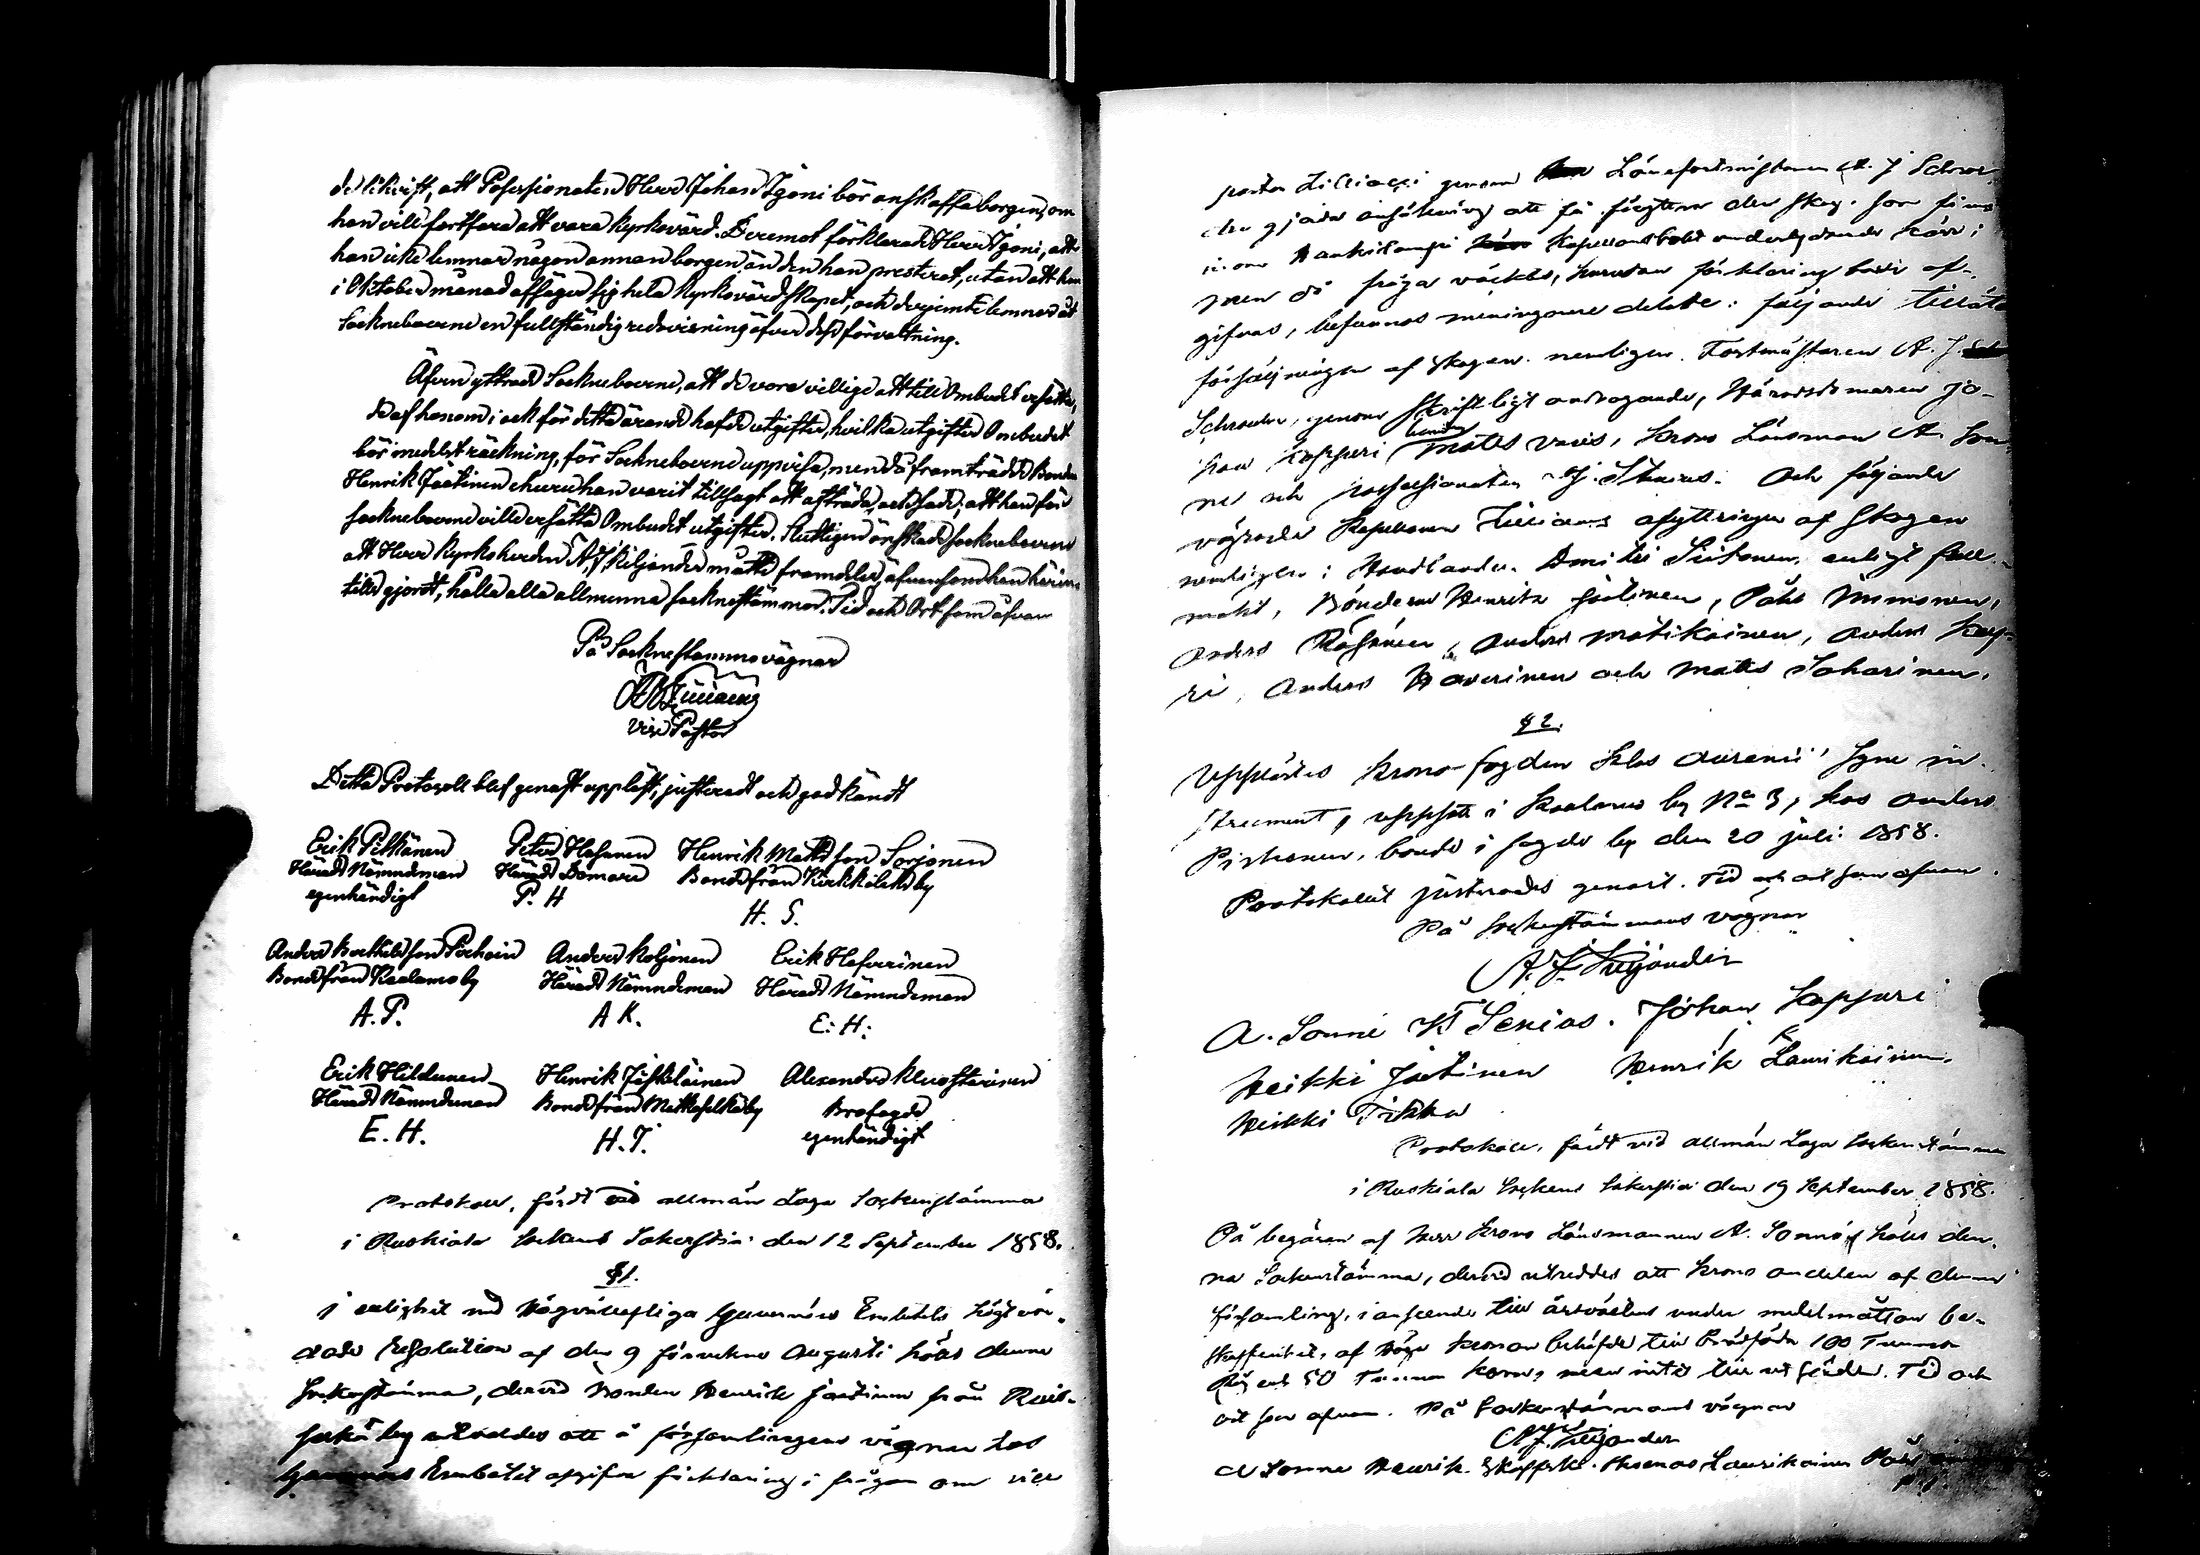 de likvist, att Possessionaten Herr Johan Igoni bör anskaffa borgen, om
han vill fortfara att vara kyrkovärd. Deremot förklarade Herr Igoni, att
han icke lemnar någon annan borgen än den han presterat, utan att han
i Oktober månad afsäger sig hela Kyrkovärdskapet, och derjemte lemnar åt
Sockneboerne en fullständig redovisning öfver dess förvaltning.
Äfven yttrade Sockneboerne, att de voro villige att till Ombudet ersätta,
de af honom i ock för detta ärende hafde utgifter, hvilka utgifter Ombudet
bör medelst räckning, för Sockneboerne uppvisa, men då framträdde Bonden
Henrik Jäetinen ehuru han varit tillsagt att afträda, och sade; att han för
sockneboerne ville ersätta Ombudet utgifter. Slutligen önskade sockneboerne
att Herr Kyrkoherden A. J. Kiljander måtte framdeles, äfvensom han härin-
tills gjordt, hålla alla allmänna sockneståmmor. Tid och Ort som ofvan
På Socknestämmovägnar
Lilliacus
Vice Pastor
Detta Protocoll blef genast uppläst, justeradt och godkändt
Erik Pitkänen Peter Hosanen Henrik Mattsson Sorjonen
Härads Nämndeman Härads Domare Bonde från Kirkkolaks by
egenhändigt P. H H. S.
Anders Bertilsson Anders Koljonen Erik Haverinen
Bonde från Kaalamo by Härads Nämndeman Härads Nämndeman
A. P. A K. E: H:
Erik Hildunen Henrik Jäskeläinen Alexander
Härads Nämndeman Bonde från Matkaselkä by Brofogde
E. H. H. J. egenhändigt
Protokoll, fördt vid allmän Laga Sockenstämma
i Ruskiala Sockens Sakerstia den 12 September 1858.
§ 1.
I enlighet med Högvällofliga Guvernörs Embetets högtvör-
dade Resolution af den 9 förvekne Augusti hölls denne
Sockenstämma, dervid Bonden Henrik Jaetinen från Ruis-
selkä by utvaldes att å församlingens vägnar hos
Guvernörs Embetet afgifva förklaring i frågan om vice
pastor Lilliacii genom Länsforstmästaren A. J Schroe-
der gjorda ansökning att få försyttra den skog som finnes
inom Haukilampi Kapellansbolet underlydande kärr;
men då fråga väcktes, hurudan förklaring borde af-
gifvas, befunnos meningarne delade: följande tilläto
försäljningen af skogen. nemligen. Forstmästaren A. J.
Schroeder, genom skriftligt andragande, Häradsdomaren Jo-
han Kapsuri bonden Matts varis, Krono Länsman A. Son-
ne och possessionaten Och följande
vägrade Kapellanen Lilliacus afyttringen af skogen
nemligen: Handlanden Dmitri Siitonen, enligt full-
makt, Bönderne Henrik Jäetinen, Påhl Immonen,
Anders Räsänen, Anders Matikainen, Anders Kap-
ri, Anders Haverinen och Matts Sakarinen.
§ 2.
Upplästes Krono-fogden Klas Aurenii' syne in-
strument, uppsatt i Kaalamo by No 3, hos Anders
Pirhonen, bonde i sagde by den 20 juli 1858.
Protokollet justerades genast. Tid och ort som ofvan.
På Sockenstämmans vägnar
A. J. Kiljander
A. Sonne Johan Kapsuri
Heikki Jaetinen Henrik Laurikainen.
Heikki Tikka
Protokoll, fördt vid allmän Laga Sockenstämma
i Ruskiala Sockens Sakerstia den 19 September 1858.
På begäran af Herr Krono Länsmannen A. Sonne hölls den-
na Sockenstämma, dervid utreddes att Krono andelen af denne
församling, i anseende till årsväxtens under medelmåttan be-
skaffenhet, af Höga Kronan behöfde till brödföda 100 Tunnor
Råg och 50 Tunnor korn, men intet till utsäden. Tid och
ort som ofvan. På Sockenstämmans vägnar
A. J. Kiljander
A Sonne Henrik Laurikainen Påhl
P. I.